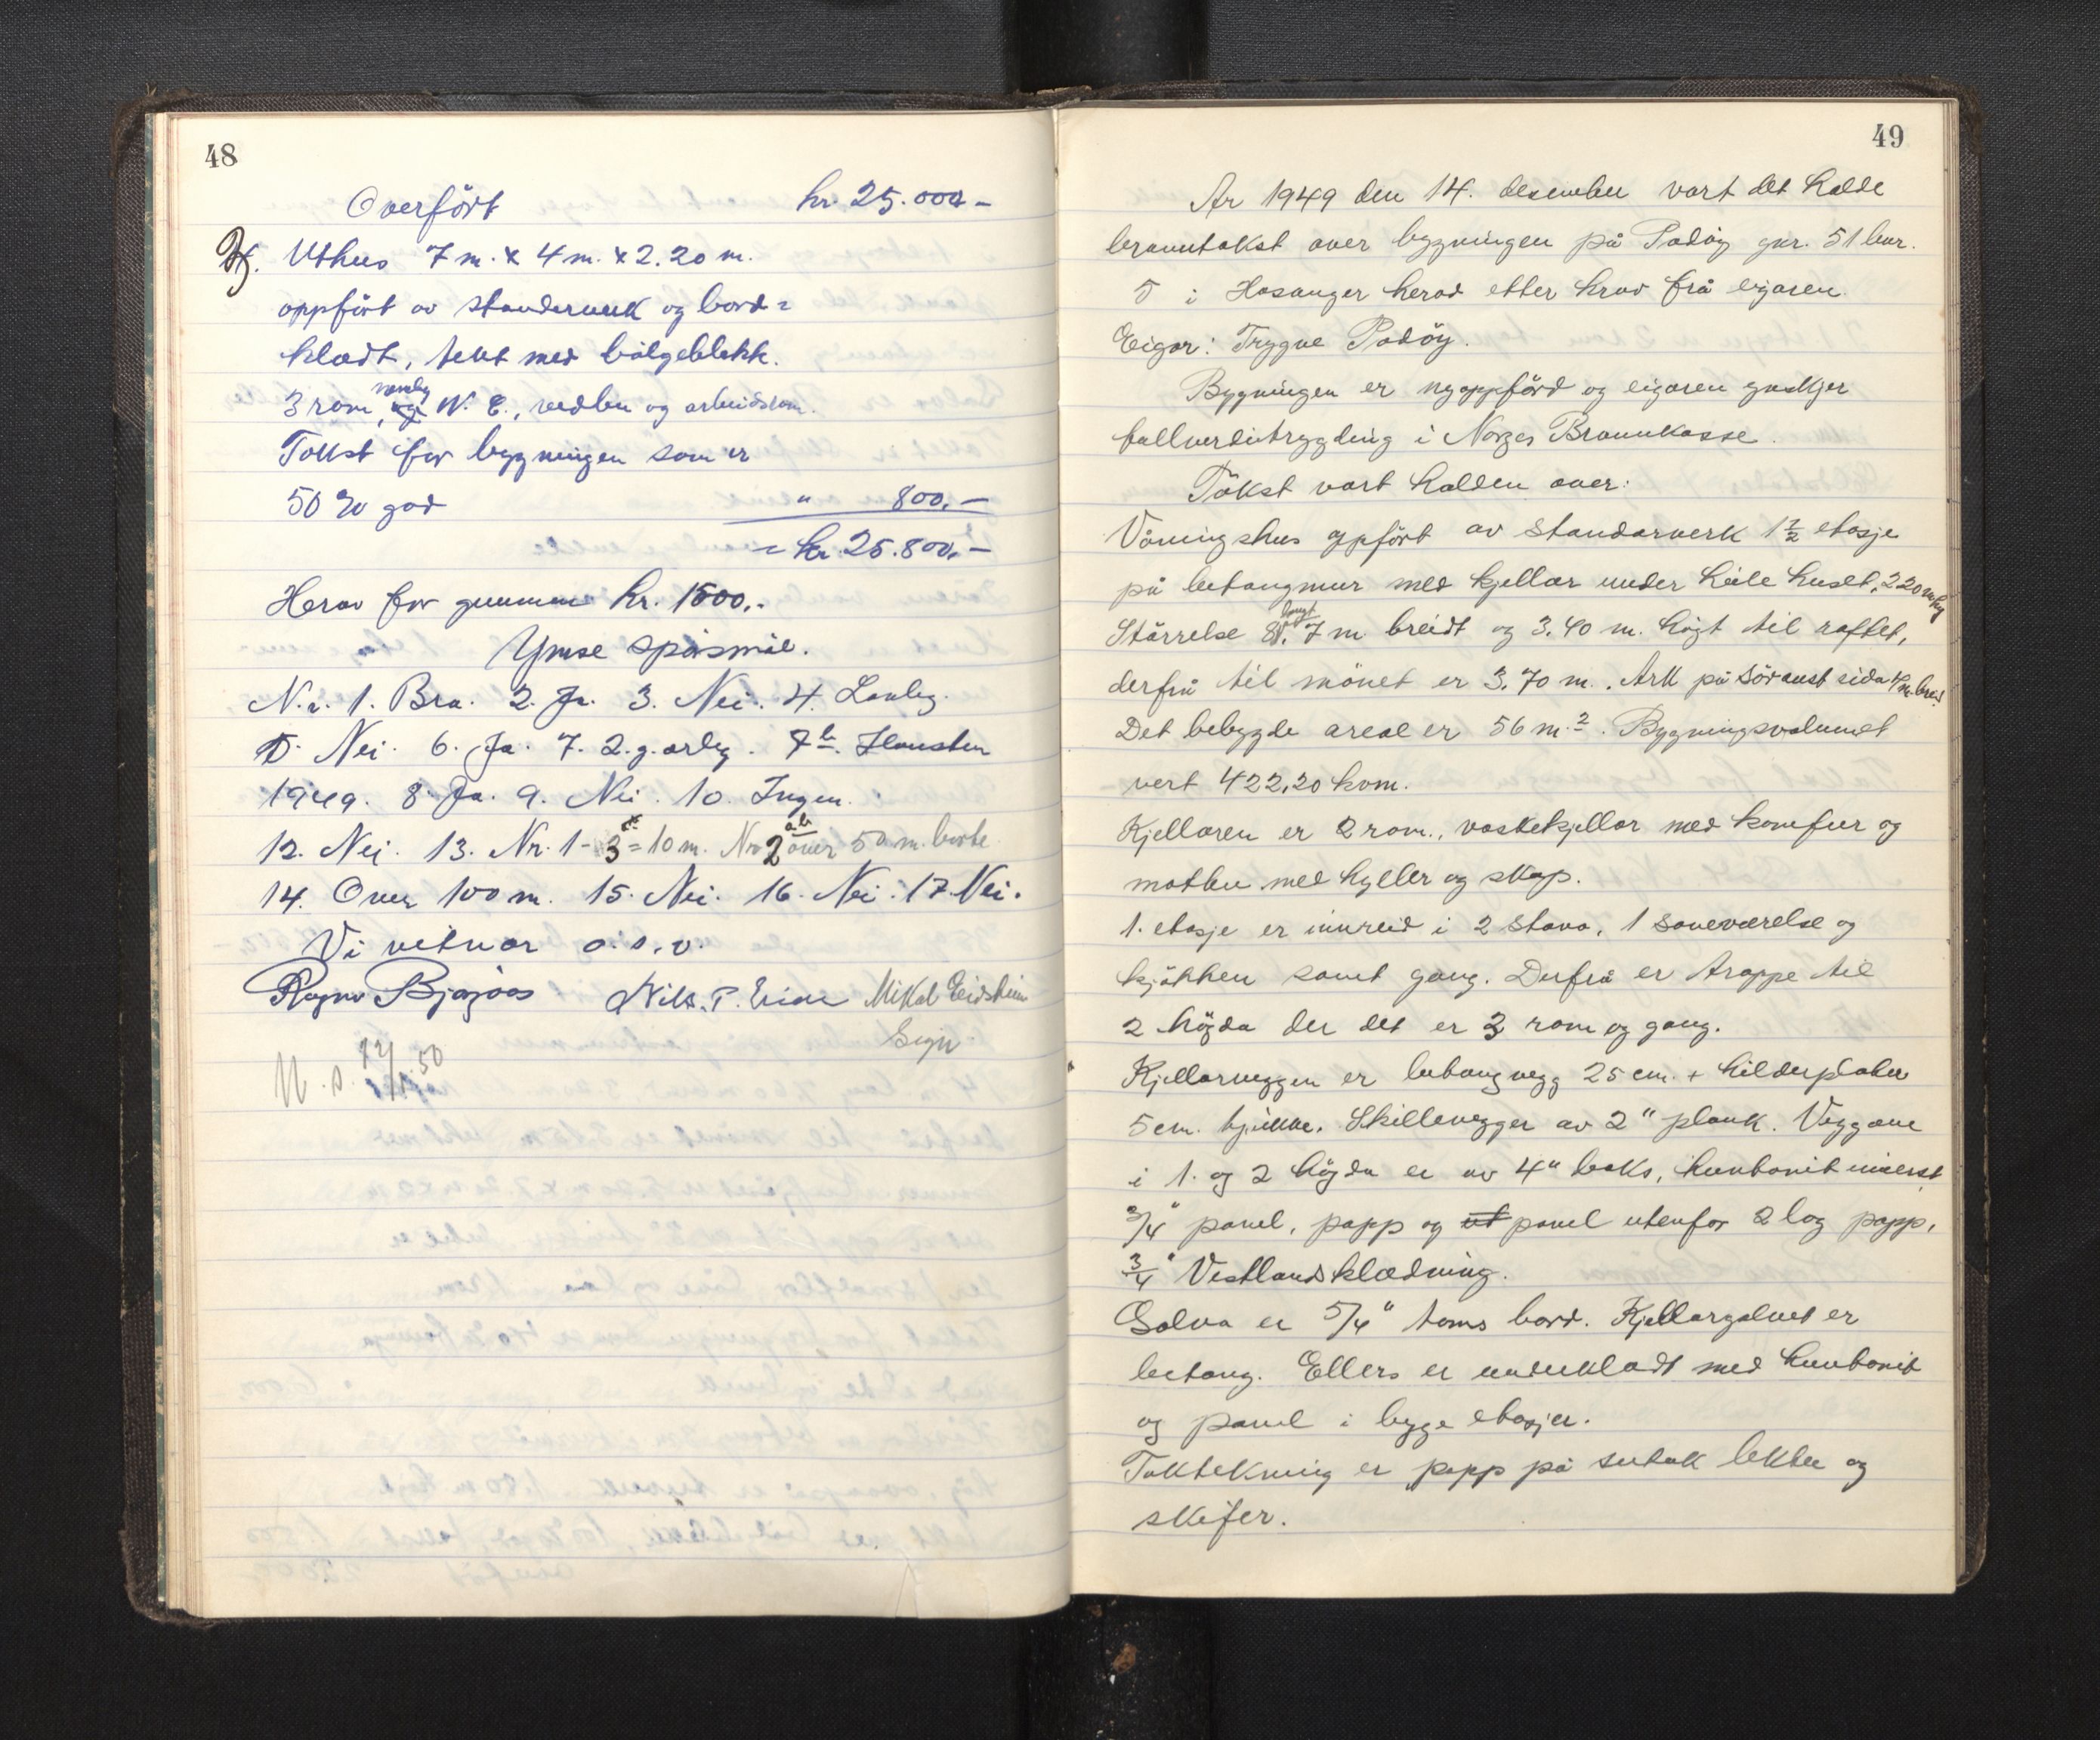 48
Overført kr. 25.000 –
Uthus 7 m. x 4 m. x 2.20 m.
oppført av standerverk og bord=
klædt, tekt med bølgeblekk.
3 rom, nemleg W. C., vedbu og arbeidsrom.
Takst for bygningen som er
50 % god " 800. –
= kr. 25.800. –
Herav for grunnmur kr. 1500.-
Ymse spørsmål.
N.r. 1. Bra. 2. Ja. 3. Nei. 4. Lovleg.
5. Nei. 6. Ja. 7. 2. g. årleg. 7b. Hausten
1949. 8. Ja. 9. Nei. 10. Ingen.
12. Nei. 13. Nr. 1 - 3 = 10 m. Nr 2 over 50 m. borte.
14. Over 100 m. 15. Nei. 16. Nei. 17. Nei.
Vi vitnar o. s. v.
Ragnv Bjørjoas Nils. P. Eide Mikal Eidsheim
Sign.
N. s. 12/1. 50
49
År 1949 den 14. desember vart det halde
branntakst over bygningen på Padøy gnr. 51 bnr.
5 i Hosanger herad etter krav frå eigaren.
Eigar: Trygve Padøy.
Bygningen er nyoppførd og eigaren ynskjer
fullverditrygding i Norges Brannkasse.
Takst vart halden over:
Våningshus oppført av standarverk 1 1/2 etasje
på betongmur med kjellar under heile huset, 2.20 m høg
Størrelse 8 langt, 7 m breidt og 3.40 m. høgt til raftet,
derfrå til mønet er 3.70 m.. Ark på søraust sida 4 m. breid
Det bebygde areal er 56 m.². Bygningsvolumet
vert 422,20 kvm.
Kjellaren er 2 rom., vaskekjellar med komfur og
matbu med hyller og skap.
1. etasje er innreid i 2 stova, 1 soveværelse og
kjøkken samt gang. Derfrå er trappe til
2 høgda der det er 3 rom og gang.
Kjellarveggen er betongvegg 25 cm. + kilderplater
5 cm. tjukke. Skillevegger av 2" plank. Veggane
i 1. og 2 høgda er av 4" boks, huntonit innerst,
3/4" panel, papp og ut panel utenfor 2 lag papp,
3/4" Vestlandsklædning.
Golva er 5/4" toms bord. Kjellargolvet er
betong. Ellers er underkladt med huntonit
og panel i bygge etasjer.
Taktekning er papp på sutak lekter og
skifer.